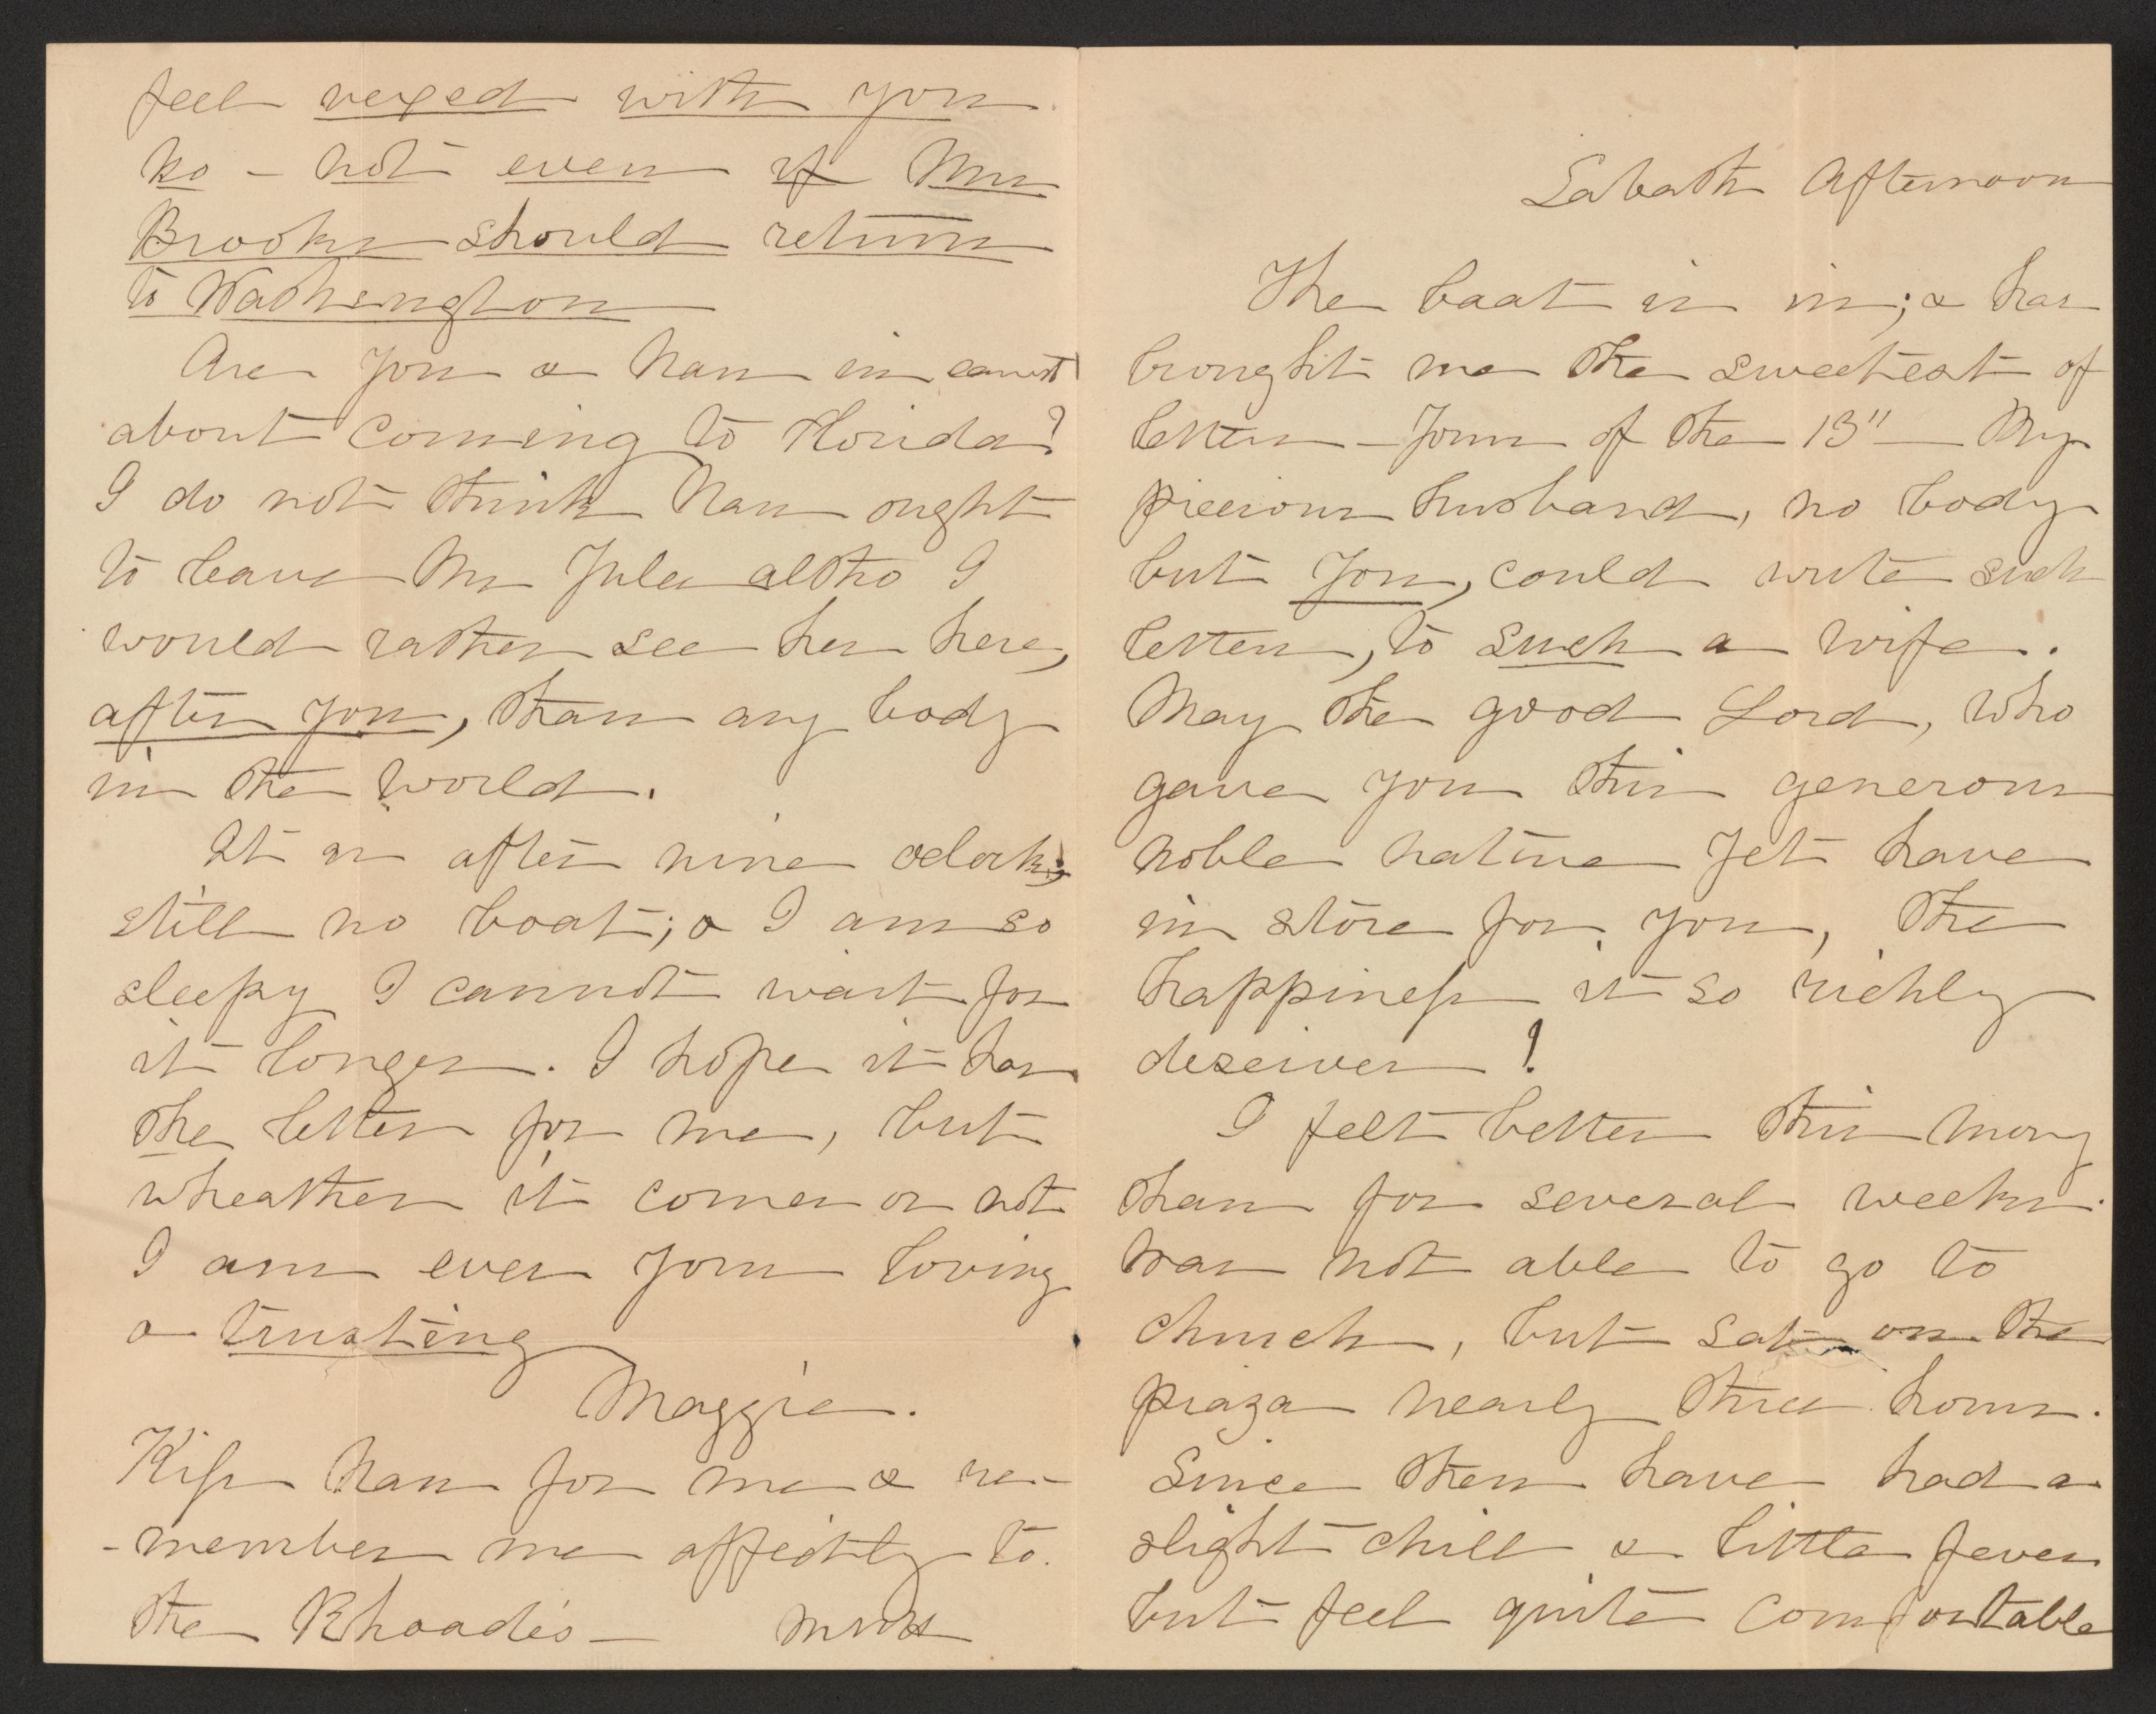 feel vexed with you.
No - not even if Mrs
Brooks should return
to Washington
Are you & Nan in earnest
about coming to Florida?
I do not think Nan ought
to leave Mr Jule altho I
would rather see her here,
after you, than any body
in the world.
It is after nine oclock,
still no boat; & I am so
sleepy I cannot wait for
it longer. I hope it has
the letter for me, but
wheather it comes or not
I am ever your loving
& trusting
Maggie.
Kiss Nan for me & re-
-member me affectly to
the Rhoades -
Sabath Afternoon
The boat is in; & has
brought me the sweetest of
letters - Yours of the 13" - My
precious husband, no body
but you, could write such
letters, to such a wife.
May the good Lord, who
gave you this generous
noble nature yet have
in store for you, the
happiness it so richly
deserves!
I felt better this morng
than for several weeks.
Was not able to go to
church, but sat on the
piaza nearly three hours.
Since then have had a
slight chill & little fever
but feel quite comfortable